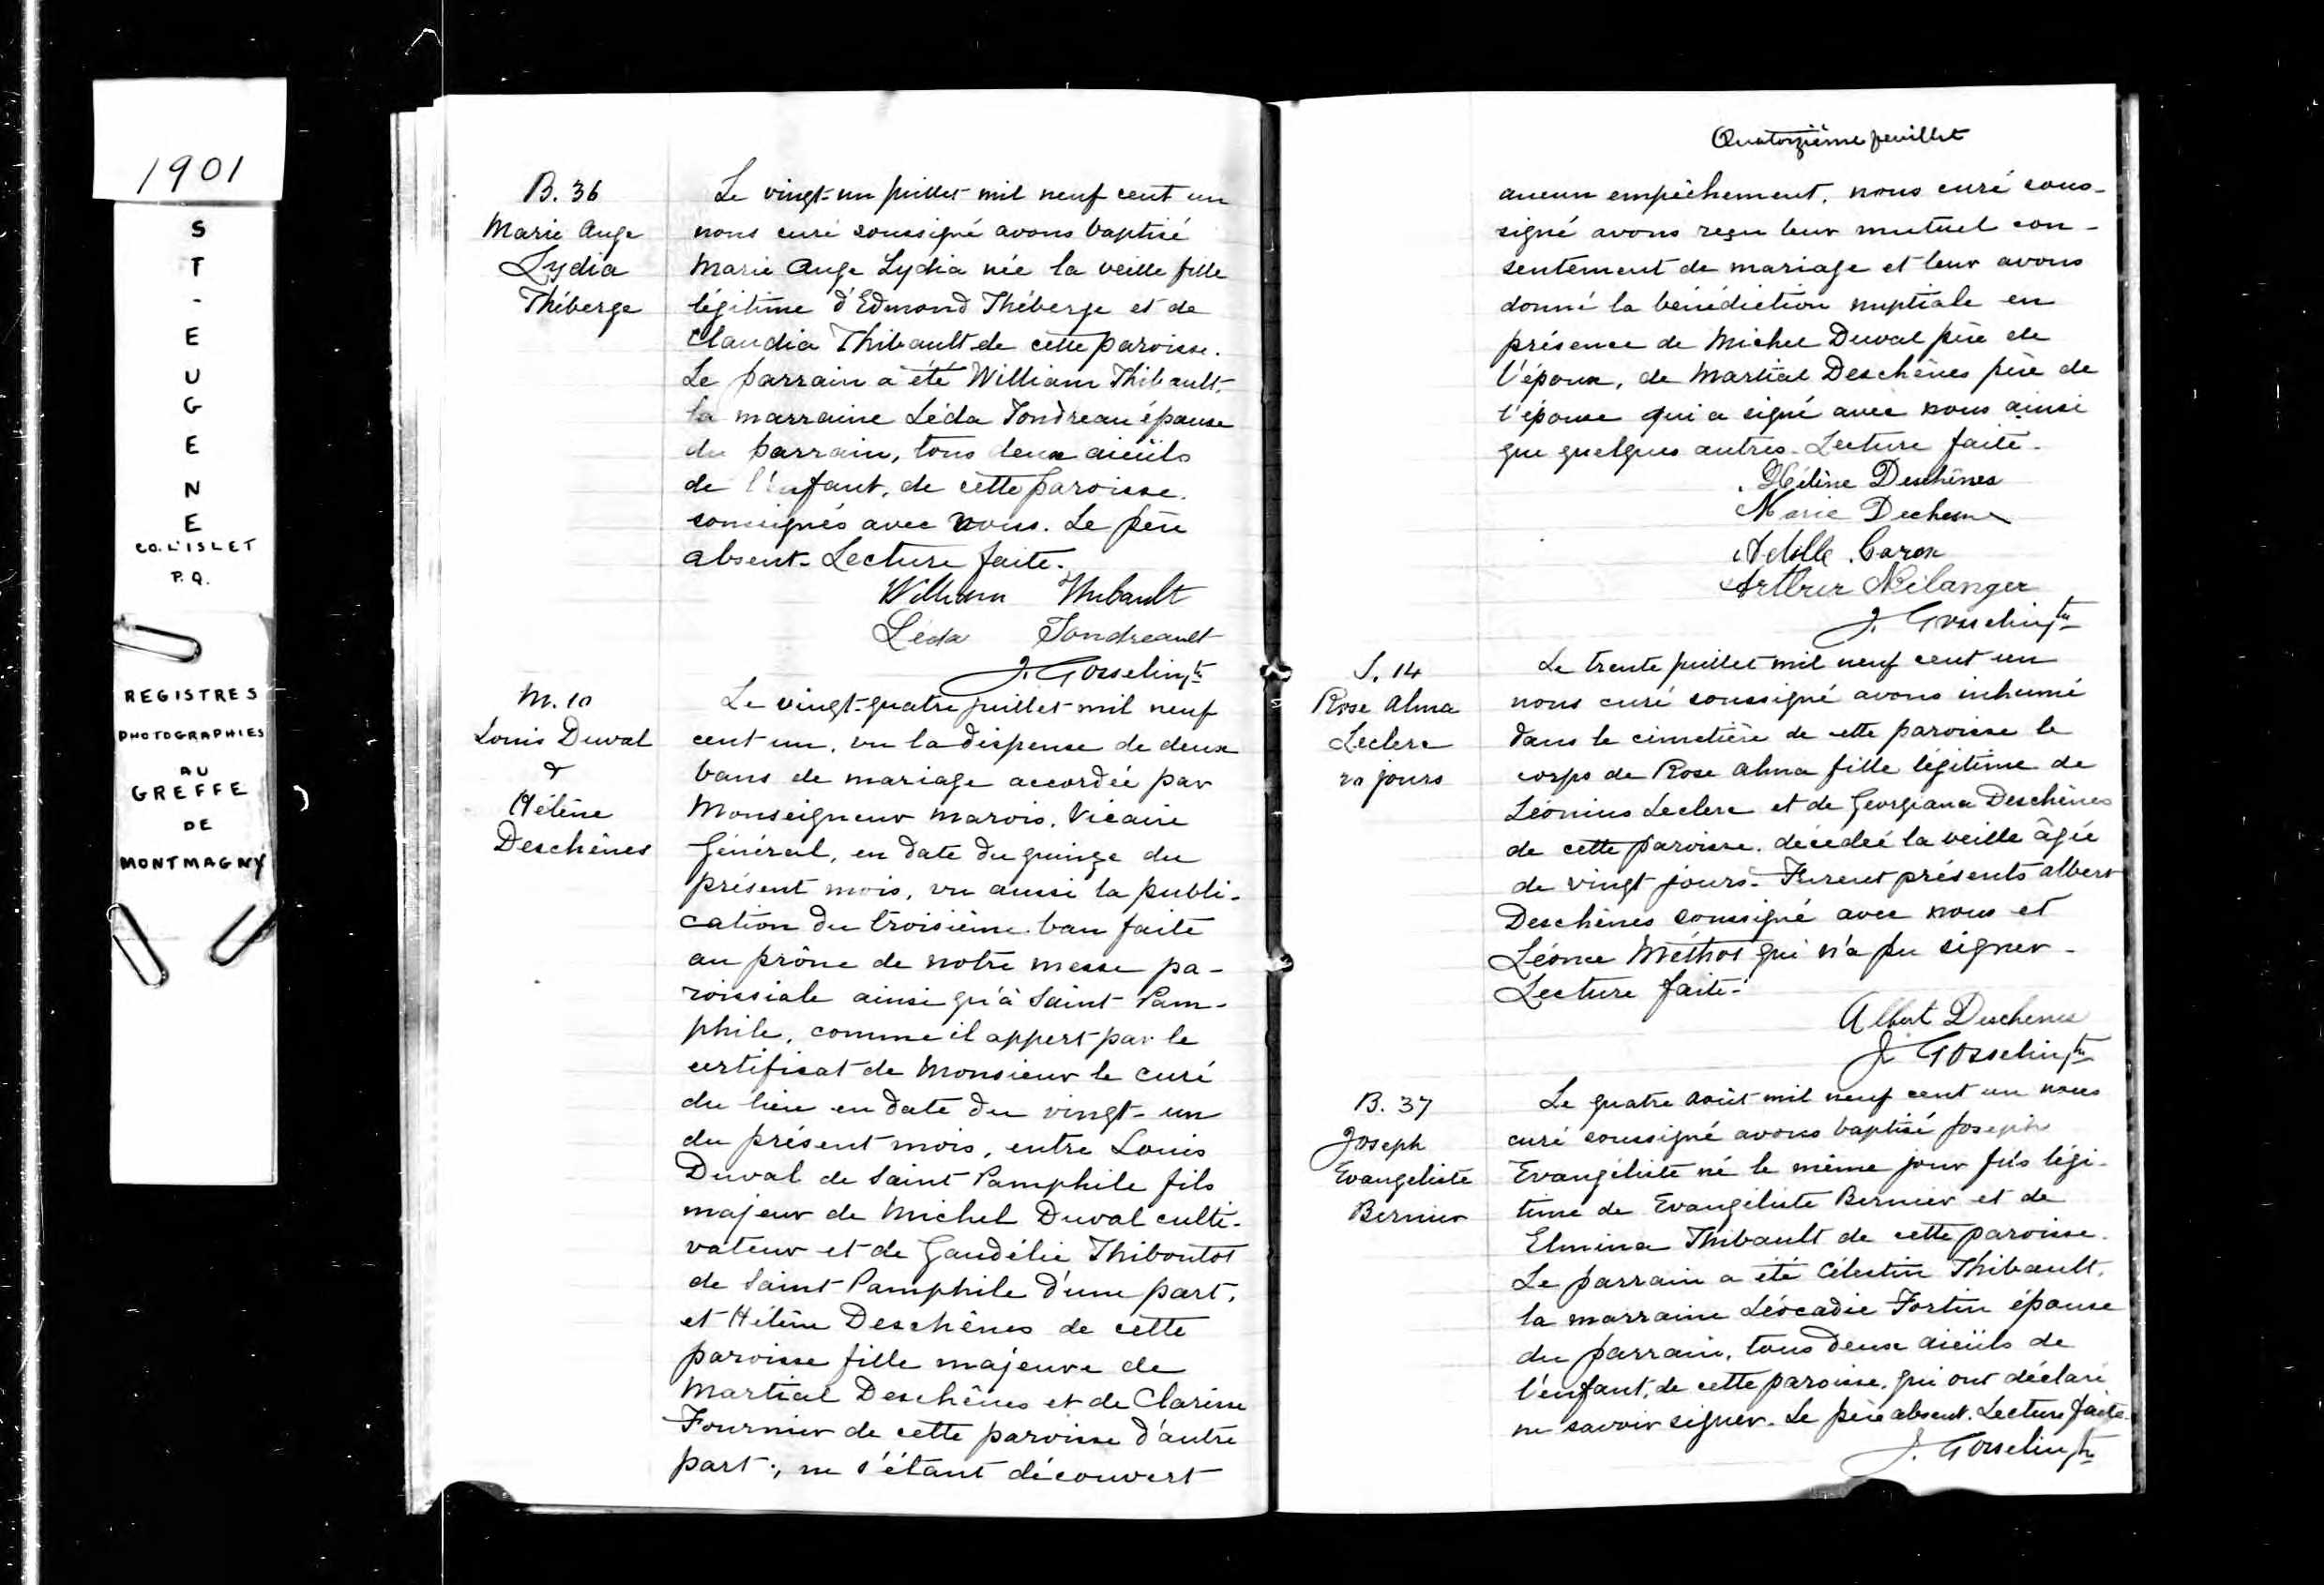 1901
S
T
-
E
U
G
E
N
E
CO. L'ISLET
P.Q.
REGISTRES
PHOTOGRAPHIES
AU
GREFFE
DE
MONTMAGNY
B. 36
Marie Ange
Lydia
Théberge
Le vingt-un juillet mil neuf cent un
nous curé soussigné avons baptisé
Marie Ange Lydia née la veille fille
légitime d'Edmond Théberge et de
Claudia Thibault de cette paroisse.
Le parrain a été William Thibault,
la marraine Léda Tondreau épouse
du parrain, tous deux aieüls
de l'enfant, de cette paroisse.
soussignés avec nous. Le père
absent. Lecture faite.
William Thibault
Léda Tondreault
J. Gosselin ptre
M. 10
Louis Duval
&
Hélène
Deschênes
Le vingt-quatre juillet mil neuf
cent un, vu la dispense de deux
bans de mariage accordée par
Monseigneur Marois, Vicaire
Général, en date du quinze du
présent mois, vu aussi la publi-
cation du troisième ban faite
au prône de notre messe pa-
roissiale ainsi qu'à Saint-Pam-
phile, comme il appert par le
certificat de Monsieur le curé
du lieu en date du vingt-un
du présent mois, entre Louis
Duval de Saint Pamphile fils
majeur de Michel Duval culti-
vateur et de Gaudélie Thiboutot
de Saint-Pamphile d'une part,
et Hélène Deschênes de cette
paroisse fille majeure de
Martial Deschênes et de Clarisse
Fournier de cette paroisse d'autre
part; ne s'étant découvert
Quatorzième feuillet
aucun empêchement, nous curé sous-
signé avons reçu leur mutuel con-
sentement de mariage et leur avons
donné la bénédiction nuptiale en
présence de Michel Duval père de
l'époux, de Martial Deschênes père de
l'épouse qui a signé avec nous ainsi
que quelques autres. Lecture faite.
Hélène Deschênes
Marie Dechene
Adelle Caron
Arthur Bélanger
J. Gosselin ptre
S. 14
Rose Alma
Leclerc
20 jours
Le trente juillet mil neuf cent un
nous curé soussigné avons inhumé
dans le cimetière de cette paroisse le
corps de Rose Alma fille légitime de
Léonius Leclerc et de Georgiana Deschênes
de cette paroisse, décédée la veille âgée
de vingt jours. Furent présents Albert
Deschênes soussigné avec nous et
Léonce Méthot qui n'a pu signer.
Lecture faite.
Albert Deschenes
J. Gosselin ptre
B. 37
Joseph
Evangeliste
Bernier
Le quatre août mil neuf cent un nous
curé soussigné avons baptisé Joseph
Evangéliste né le même jour fils légi-
time de Evangéliste Bernier et de
Elmina Thibault de cette paroisse.
Le parrain a été Célestin Thibault,
la marraine Léocadie Fortin épouse
du parrain, tous deux aieüls de
l'enfant, de cette paroisse, qui ont déclaré
ne savoir signer. Le père absent. Lecture faite.
J. Gosselin ptre